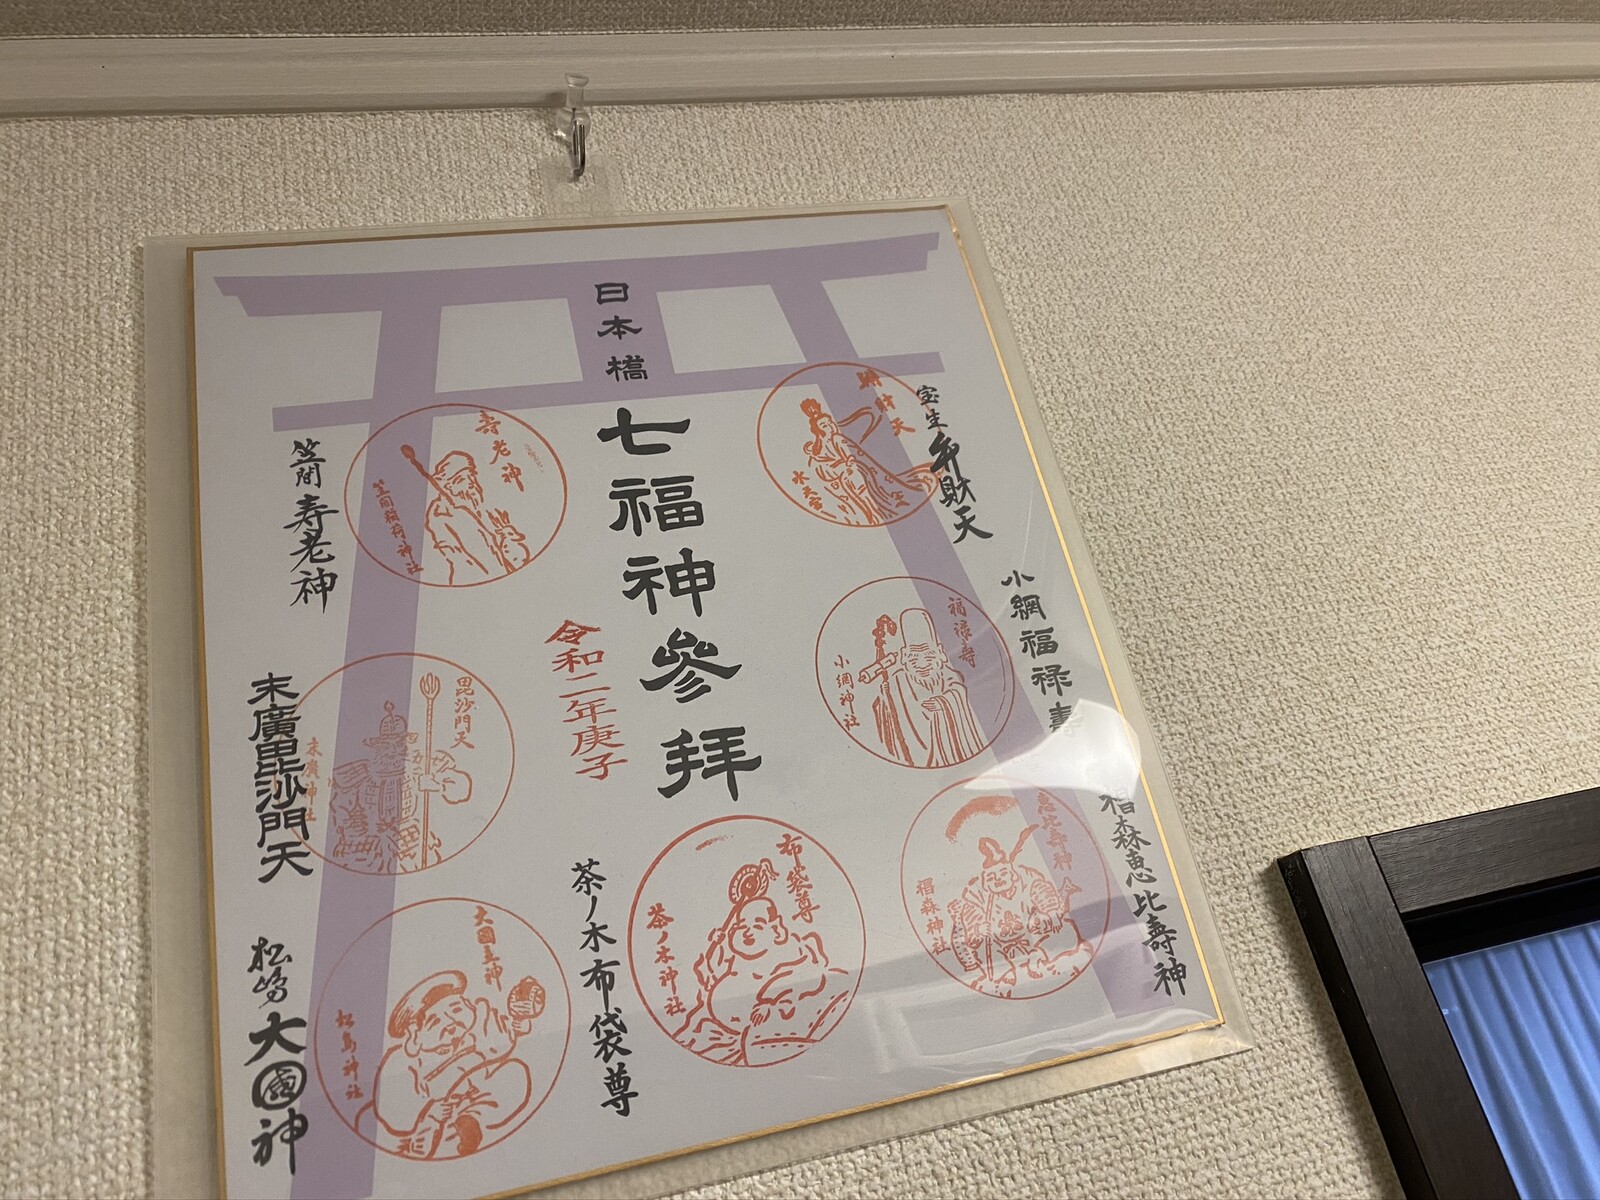 日本橋
七福神參拝
令和二年庚子
宝生弁財天
辨財天
水天宮
小網福禄寿
福禄寿
小網神社
椙森恵比寿神
恵比寿神
椙森神社
茶ノ木布袋尊
布袋尊
茶ノ木神社
笠間寿老神
寿老神
笠間稲荷神社
末廣毘沙門天
毘沙門天
末廣神社
松嶋大國神
大國主神
松島神社